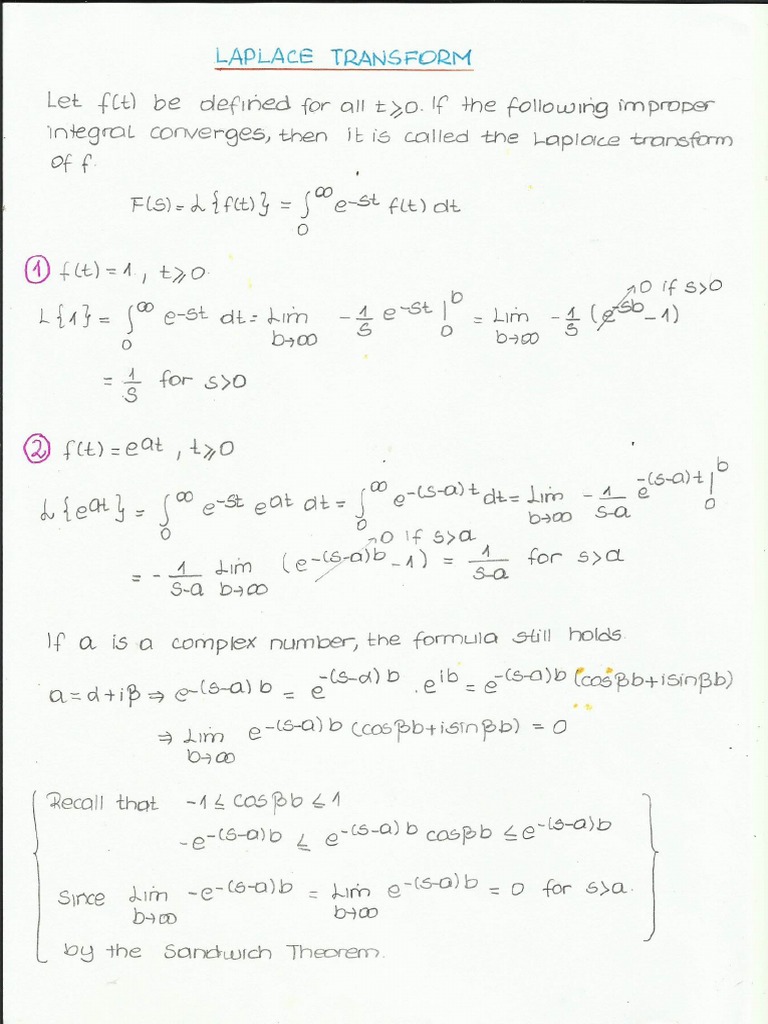 LAPLACE TRANSFORM
Let f(t) be defined for all t≥0. If the following improper
integral converges, then it is called the Laplace transform
of f.
F(s) = L{f(t)} = ∫₀^∞ e^-st f(t) dt
① f(t) = 1, t≥0
L{1} = ∫₀^∞ e^-st dt = Lim b→∞ -1/s e^-st |₀^b = Lim b→∞ -1/s (e^-sb - 1) → 0 if s>0
= 1/s for s>0
② f(t) = e^at, t≥0
L{e^at} = ∫₀^∞ e^-st e^at dt = ∫₀^∞ e^-(s-a)t dt = Lim b→∞ -1/(s-a) e^-(s-a)t |₀^b
= -1/(s-a) Lim b→∞ (e^-(s-a)b - 1) = 1/(s-a) for s>a → 0 if s>a
If a is a complex number, the formula still holds.
a = α+iβ ⇒ e^-(s-a)b = e^-(s-α)b . e^ib = e^-(s-a)b (cosβb+isinβb)
⇒ Lim b→∞ e^-(s-a)b (cosβb+isinβb) = 0
Recall that -1 ≤ cosβb ≤ 1
-e^-(s-a)b ≤ e^-(s-a)b cosβb ≤ e^-(s-a)b
Since Lim b→∞ -e^-(s-a)b = Lim b→∞ e^-(s-a)b = 0 for s>a.
by the Sandwich Theorem.